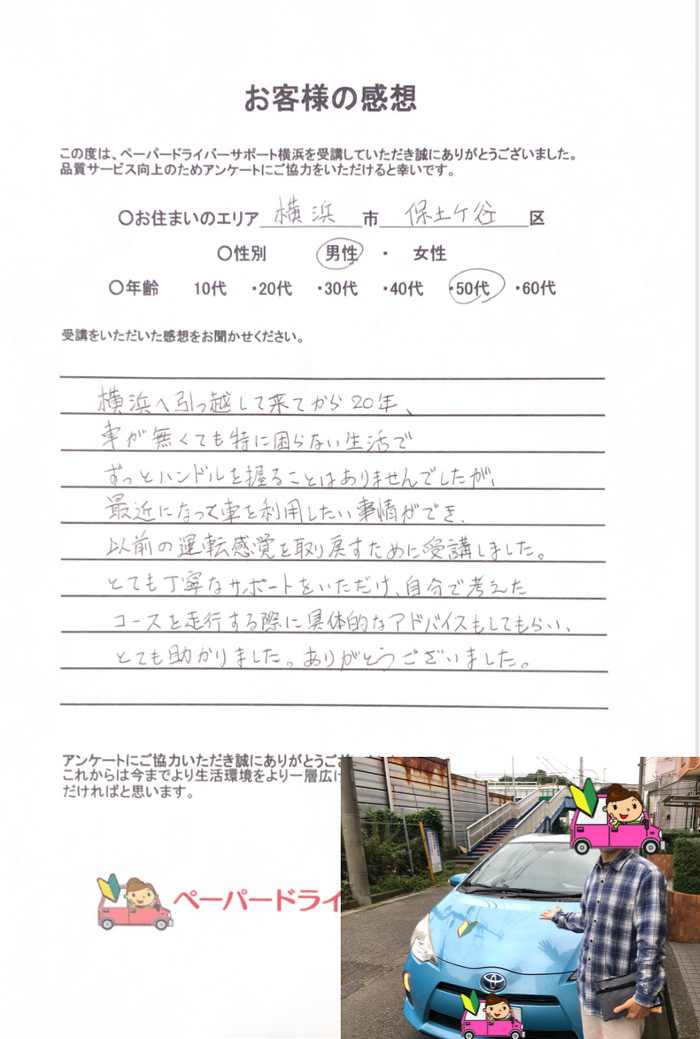 お客様の感想
この度は、ペーパードライバーサポート横浜を受講していただき誠にありがとうございました。
品質サービス向上のためアンケートにご協力をいただけると幸いです。
〇お住まいのエリア 横浜 市 保土ケ谷 区
〇性別 男性 ・ 女性
〇年齢 10代 ・20代 ・30代 ・40代 ・50代 ・60代
受講をいただいた感想をお聞かせください。
横浜へ引っ越して来てから20年、
車が無くても特に困らない生活で
ずっとハンドルを握ることはありませんでしたが、
最近になって車を利用したい事情ができ、
以前の運転感覚を取り戻すために受講しました。
とても丁寧なサポートをいただけ、自分で考えた
コースを走行する際に具体的なアドバイスもしてもらい、
とても助かりました。ありがとうございました。
アンケートにご協力いただき誠にありがとうござ
これからは今までより生活環境をより一層広げ
だければと思います。
ペーパードライ